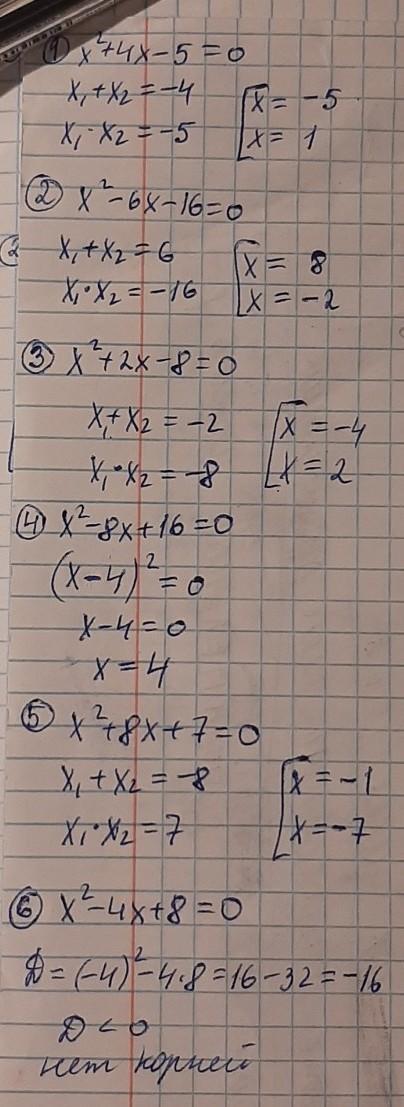 ① x²+4x-5=0
x₁+x₂=-4 [x=-5
x₁·x₂=-5 [x=1
② x²-6x-16=0
x₁+x₂=6 [x=8
x₁·x₂=-16 [x=-2
③ x²+2x-8=0
x₁+x₂=-2 [x=-4
x₁·x₂=-8 [x=2
④ x²-8x+16=0
(x-4)²=0
x-4=0
x=4
⑤ x²+8x+7=0
x₁+x₂=-8 [x=-1
x₁·x₂=7 [x=-7
⑥ x²-4x+8=0
D=(-4)²-4·8=16-32=-16
D<0
нет корней